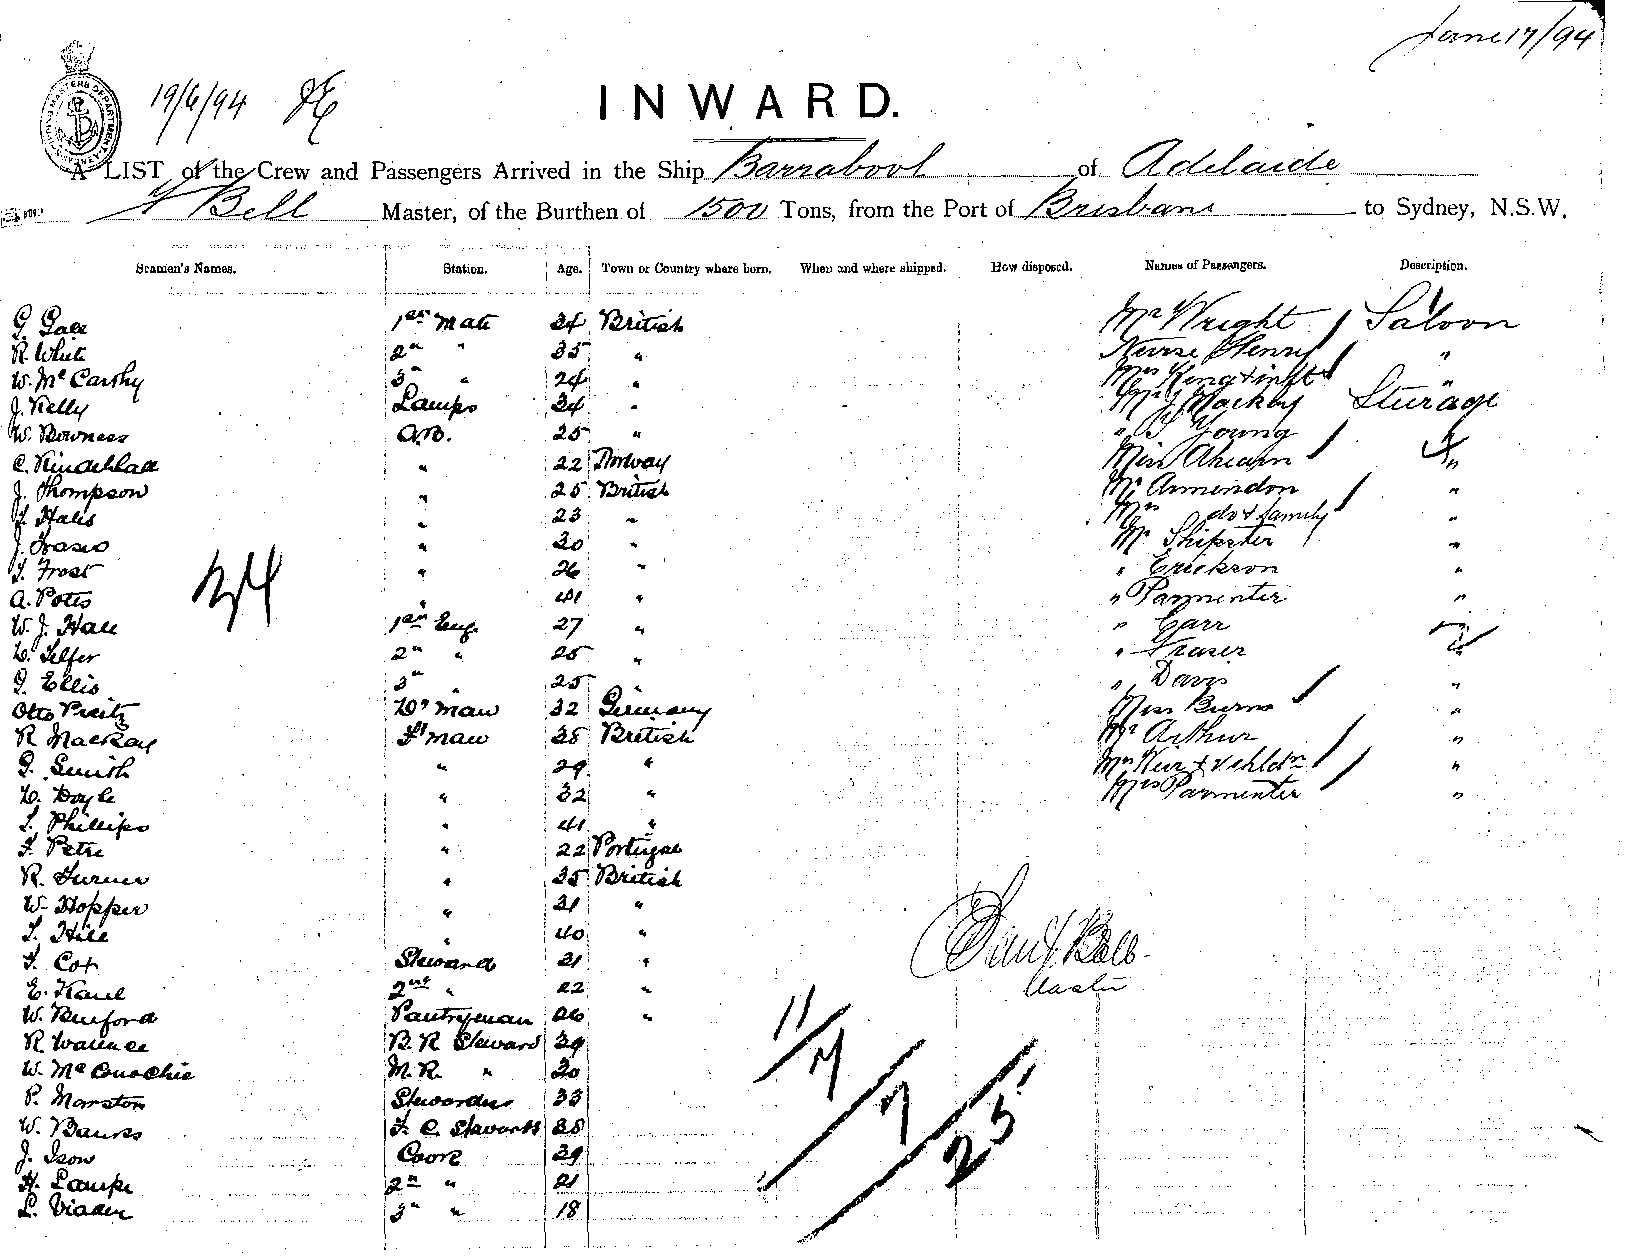 June 17/94
19/6/94
INWARD.
A LIST of the Crew and Passengers Arrived in the Ship Barrabool of Adelaide
Bell Master, of the Burthen of 1500 Tons, from the Port of Brisbane to Sydney, N.S.W.
Seamen's Names. Station. Age. Town or Country where born. When and where shipped. How disposed. Names of Passengers. Description.
1st Mate 34 British Mr Wright Saloon
R. White 2nd " 35 " Nurse Henry "
W. McCarthy 3rd " 24 " Mrs King & inft "
J. Kelly Lamps 34 " Mr J Mackay Sturage
W. Bowness A.B. 25 " " Young
" 22 Norway Miss Ahearn "
J. Thompson " 25 British Mr Armendon "
" 23 " Mrs do & family "
" 30 " Mr Shipster "
T. Frost " 26 " " Erickson "
A. Potts " 41 " " Parmenter "
W. J. Hall 1st Eng. 27 " " Carr
Telfer 2nd " 25 " " Fraser
Ellis 3rd " 25 " " Davis "
Otto 32 Germany Miss Burns "
R Mackay F'man 38 British Mr Arthur "
Smith " 29 " Mrs Weir & chldn "
Doyle " 32 " Mrs Parmenter "
Phillips " 41 "
Petre " 22 Portugal
R. Turner " 35 British
W. Hopper " 31 "
Hill " 40 "
Cox Steward 31 "
E. 2nd " 22 "
W. Pantryman 26 "
R B. R Steward 39
W. McConachie M. R. " 30
P. Marston Stewardess 33
W. Banks F. C. Steward 28
J. Ison Cook 39
H. 2nd " 21
L. 3rd " 18
Bell
Master
11/7/7/25